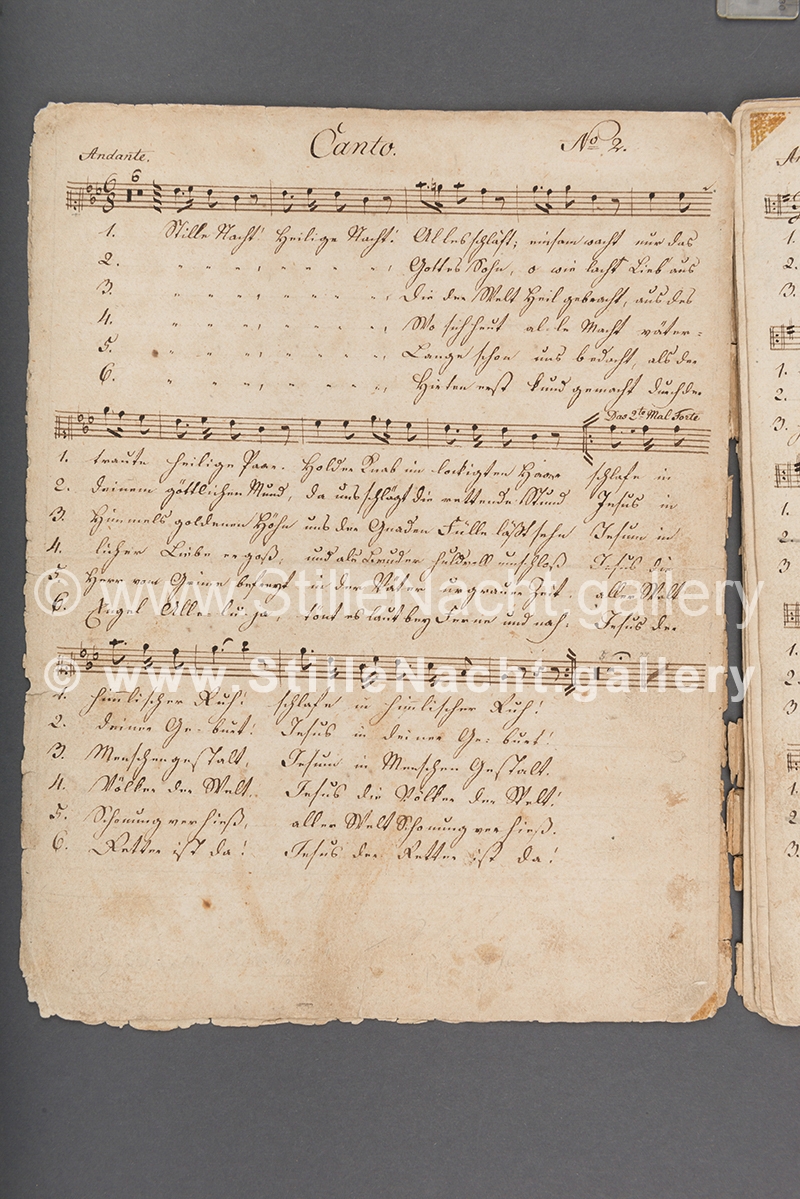 Canto. No 2.
Andante.
6
6
8
1. Stille Nacht! Heilige Nacht! Alles schläft; einsam wacht nur das
2. " " " , " " " " , Gottes Sohn, o wie lacht Lieb aus
3. " " " , " " " " , Die der Welt Heil gebracht, aus des
4. " " " , " " " " , Wo sich heut alle Macht väter=
5. " " " , " " " " , Lange schon uns bedacht, als der
6. " " " , " " " " , Hirten erst kund gemacht durch der
Das 2te Mal Forte
1. traute heilige Paar. Holder Knab im lockigten Haar schlafe in
2. deinem göttlichen Mund, da uns schlägt die rettende Stund Jesus in
3. Himmels goldenen Höhn uns der Gnaden Fülle läßt sehn Jesum in
4. licher Liebe ergoß, und als Bruder huldvoll umschloß Jesus die
5. Herr vom Grime befreyt in der Väter urgrauer Zeit aller Welt
6. Engel Alleluja, tönt es laut bey Ferne und nah: Jesus der
© www.StilleNacht.gallery
1. himmlischer Ruh! schlafe in himmlischer Ruh!
2. deiner Ge=burt! Jesus in deiner Ge=burt!
3. Menschengestalt, Jesum in Menschen Gestalt.
4. Völker der Welt. Jesus die Völker der Welt!
5. Schonung verhieß, aller Welt Schonung verhieß.
6. Retter ist da! Jesus der Retter ist da!
© www.StilleNacht.gallery
1.
2.
3.
1.
2.
3.
1.
2.
3
1.
2.
3